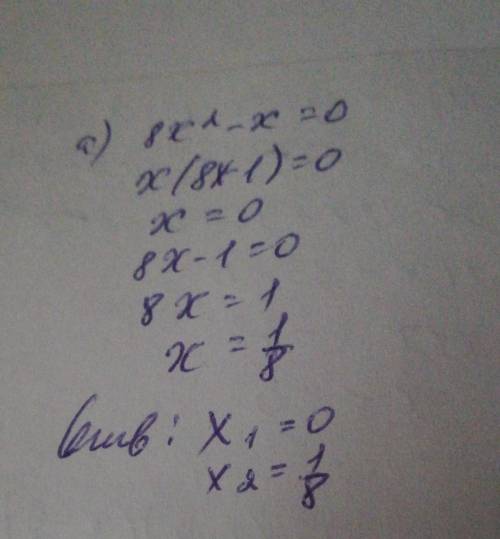 а) 8x² - x = 0
x(8x-1) = 0
x = 0
8x - 1 = 0
8x = 1
x = 1/8
Ответ: x₁ = 0
x₂ = 1/8